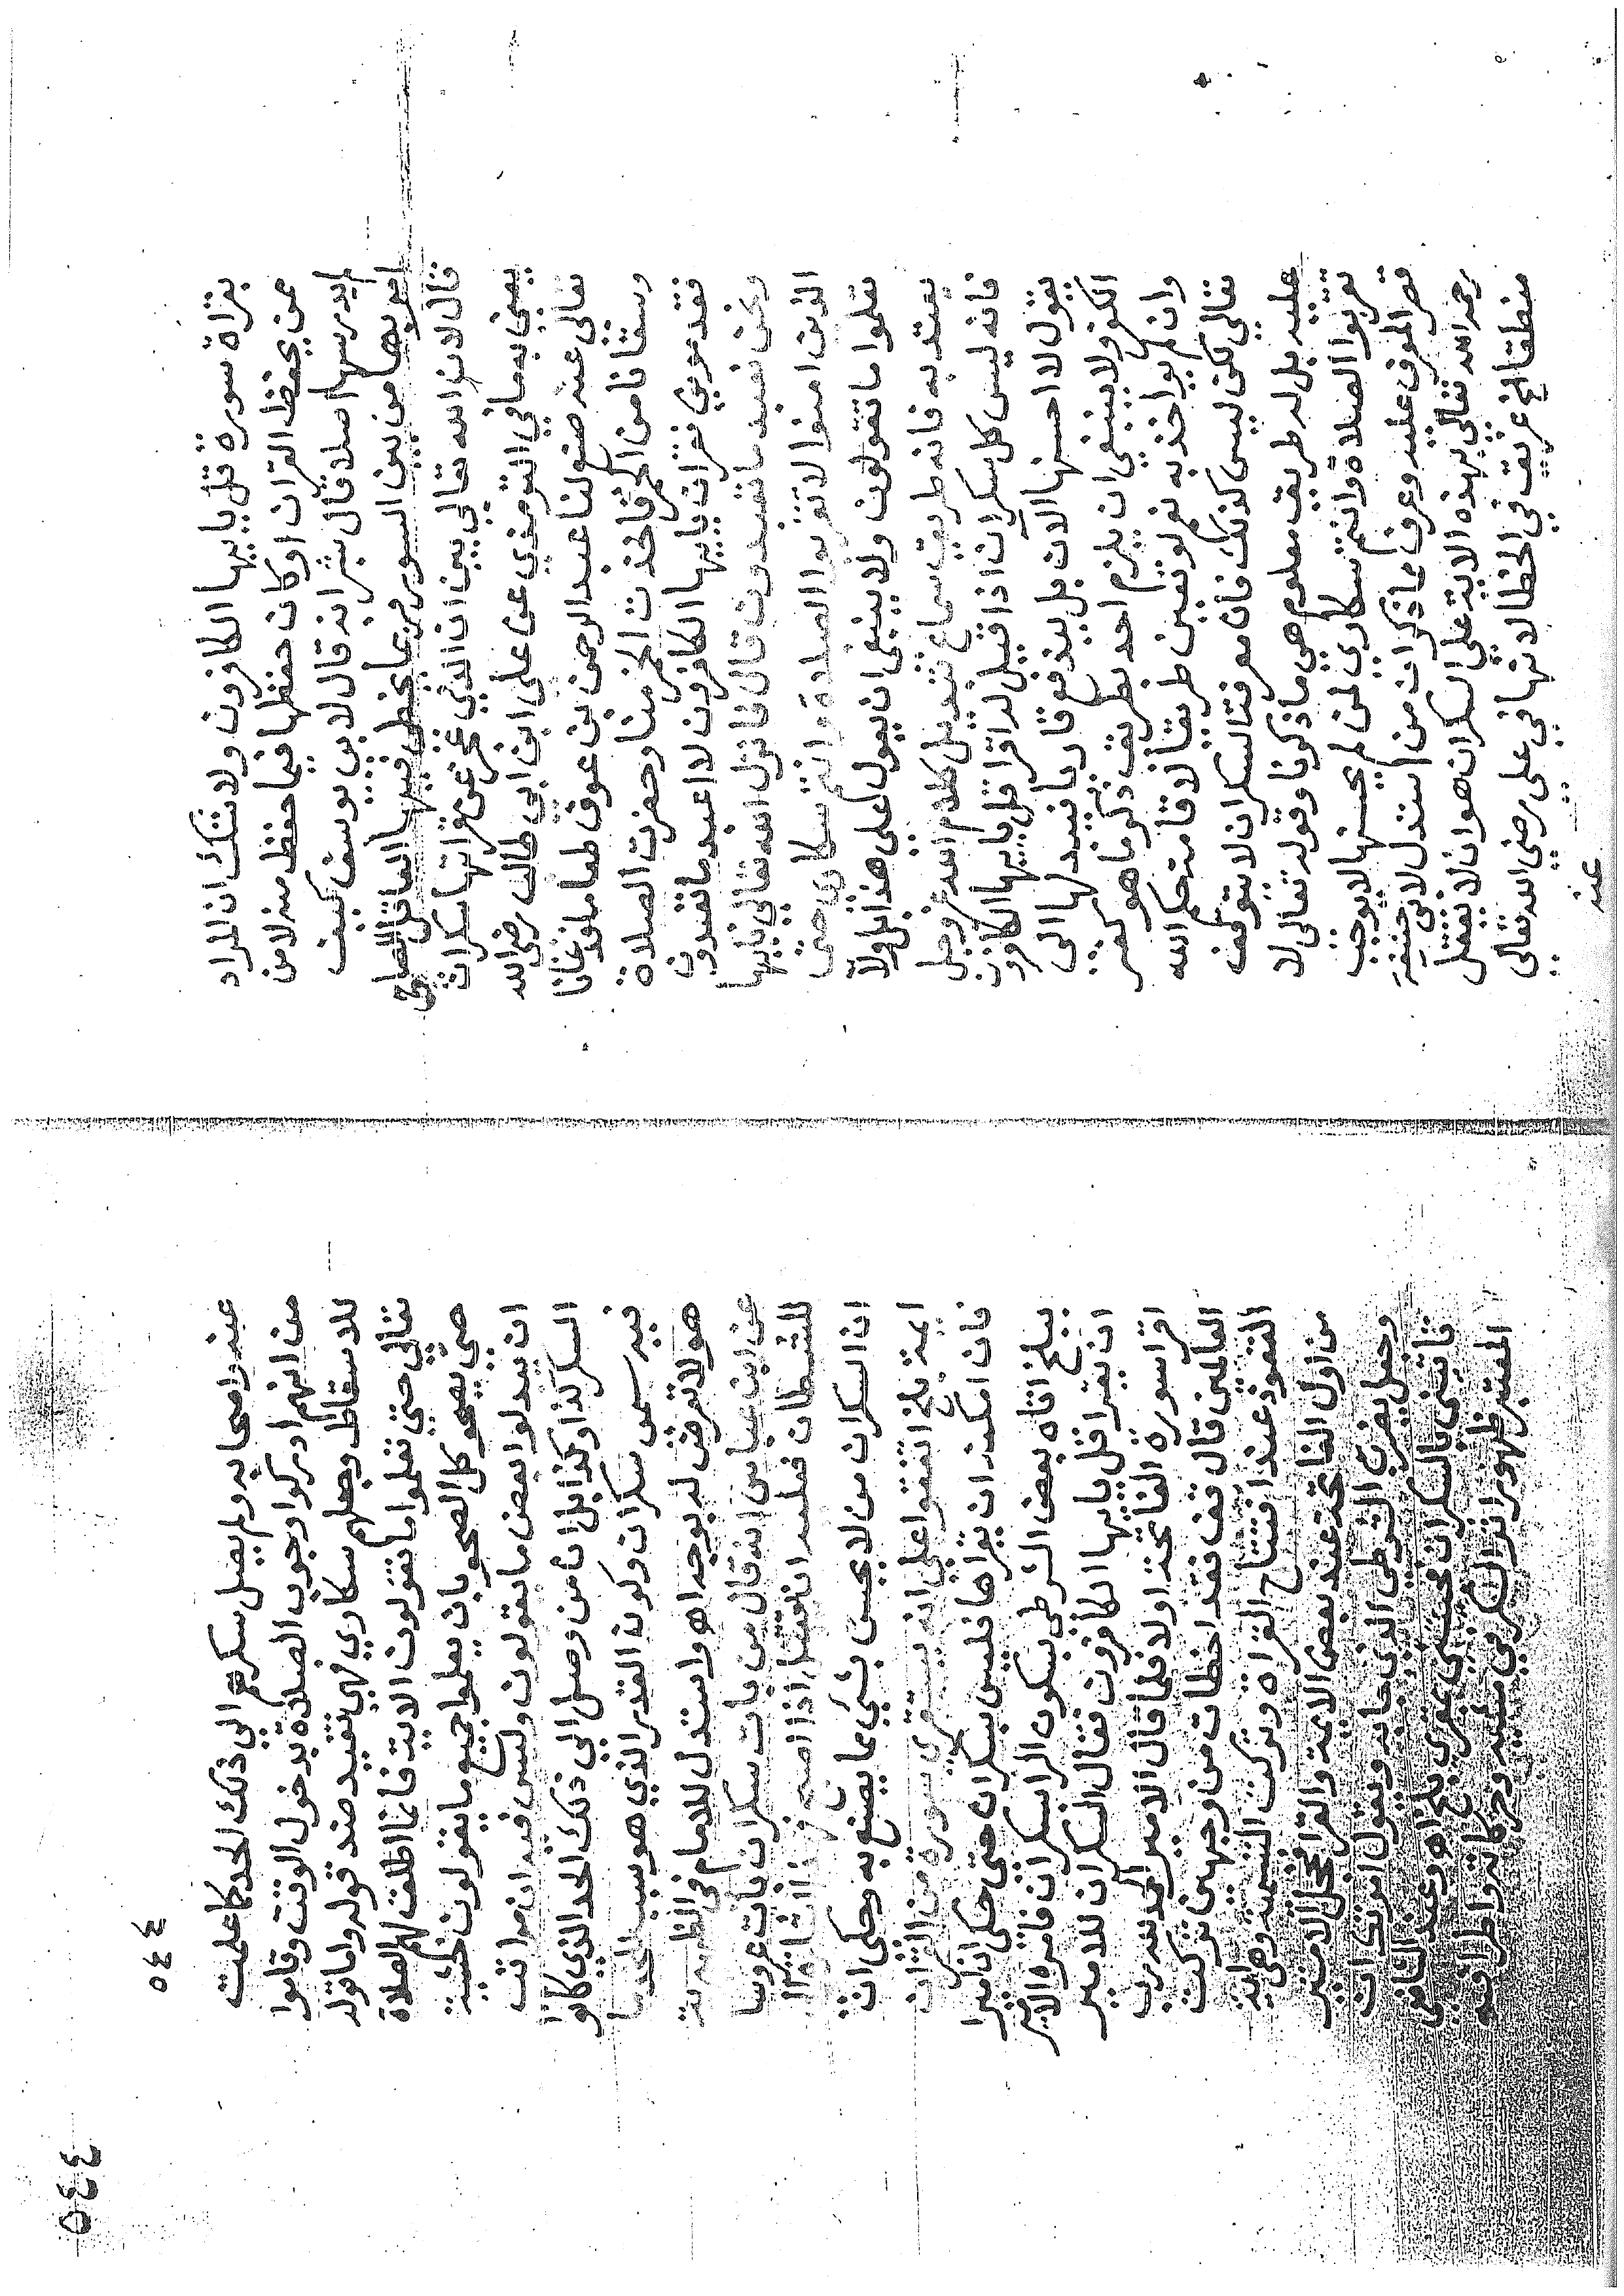 بقراة سورة قل يا ايها الكافرون ولا شك ان المراد
ممن يحفظ القران او كان حفظها فيما حفظ منه لا من
لم يدرسها اصلا قال بشر انه قال لابي يوسف كيف
امر بها من بين السور فربما يخطي فيها العاقل الصاحي
قال لان الله تعالى بين ان الذي عجز عن قراتها سكران
يعني به ما في الترمذي عن علي ابن ابي طالب رضي الله
تعالى عنه صنع لنا عبد الرحمن بن عوف طعاما فدعانا
وسقانا من الخمر فاخذت الخمر منا وحضرت الصلاة
فقدموني فقرات يا ايها الكافرون لا اعبد ما تعبدون
ونحن نعبد ما تعبدون قال فانزل الله تعالى يا ايها
الذين امنوا لا تقربوا الصلاة وانتم سكارى حتى
تعلموا ما تقولون ولا ينبغي ان يعول على هذا بل ولا
يعتد به فانه طريق سماع تبديل كلام الله عز وجل
فانه ليس كل سكران اذا قيل له اقرا قل يا ايها الكافرون
يقول لا احسنها الان بل يندفع قاريا فيبدلها الى
الكفر ولا ينبغي ان يلزم احد بطريق ذكر ما هو كفر
وان لم يواخذ به نعم لو تعين طريقا لاقامة حكم الله
تعالى لكن ليس كذلك فان معرفة السكران لا تتوقف
عليه بل له طريق معلوم هي ما ذكرنا وقوله تعالى لا
تقربوا الصلاة وانتم سكارى لمن لم يحسنها لا يوجب
قصر المعرف عليه وعرف مما ذكر ان من استدل لابي حنيفة
رحمه الله تعالى بهذه الاية على السكران هو ان لا يعقل
منطقا الخ غريق في الخطا لانها في علي رضي الله تعالى
عنه
٥٤٤
٥٤٤
عنه واصحابه ولم يصل سكرهم الى ذلك الحد كما علمت
من انهم ادركوا وجوب الصلاة بدخول الوقت وقاموا
للاسقاط وجعلهم سكارى فهي تفيد ضد قوله واما قوله
تعالى حتى تعلموا ما تقولون الاية فانما اطلق لهم الصلاة
حتى يصحو كل الصحو بان يعلموا جميع ما يقولون خشية
ان يبدلوا بعض ما يقولون وليس فيه ان مراتب
السكر كذا وكذا بل ان من وصل الى ذلك الحد الذي كانوا
فيه سمي سكران وكون القدر الذي هو سبب للحد ما
هو لا تعرض له بوجه اهـ واستدل للامام في الظهيرية
عن ابن عباس انه قال من بات سكران بات عروسا
للشيطان فعليه ان يغتسل اذا اصبح
ان السكران من لا يحس بشي مما يصنع به وحكي ان
ايمة بلخ اتفقوا على انه يستقري سورة من القران
فان امكنه ان يقراها فليس بسكران حتى حكي ان اميرا
ببلخ اتاه بعض الشرطي بسكون الرا سكران فامره الامير
ان يقرا قل يا ايها الكافرون فقال السكران للامير
اقرا سورة الفاتحة اولا فلما قال الامير الحمد لله رب
العالمين قال قف فقد اخطات من وجهين تركت
التعوذ عند افتتاح القراة وتركت التسمية وهي اية
من اول الفاتحة عند بعض الايمة والقرا فخجل الامير
وجعل يضرب الشرطي الذي جا به ويقول امرتك ان
تاتيني بالسكران فجيتني بمقري بلخ اهـ وعند الشافعي
المعتبر ظهور اثر السكر في مشيه وحركاته واطرافه